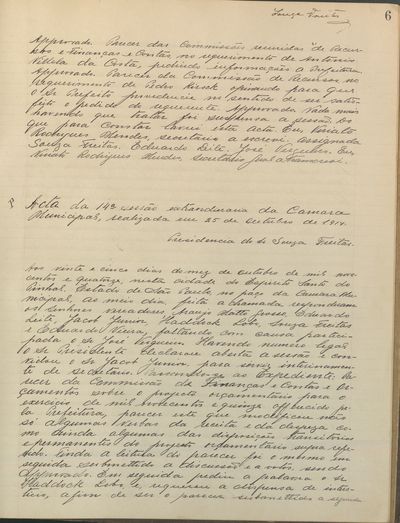 Souza Freitas
6
Approvado. Parecer das Commissões reunidas de Recursos
e Finanças e Contas, no requerimento de Antonio
Villela da Costa, pedindo informações á Prefeitura.
Approvado. Parecer da Commissão de Recursos no
requerimento de Pedro opinando para que
o Sr. Prefeito providencie no sentido de ser satisfeito
o pedido do requerente. Approvado. Nada mais
havendo que tratar foi suspensa a sessão. Do
que para constar lavrei esta acta. Eu, Renato
Rodrigues Mendes, secretario a escrevi. assignada
Souza Freitas. Eduardo Leite. José Eu,
Renato Rodrigues Mendes, secretario
Acta da 14ª sessão extraordinaria da Camara
Municipal, realizada em 25 de Outubro de 1914.
Presidencia do Sr. Souza Freitas.
Aos vinte e cinco dias do mez de Outubro de mil novecentos
e quatorze, nesta cidade do Espirito Santo do
Pinhal, Estado de São Paulo no paço da Camara Municipal,
ao meio dia, feita a chamada responderam
os Senhores vereadores, Araujo Motta, Eduardo
Leite, Jacob Junior, Haddock Lobo, Souza Freitas
e Eduardo Vieira, faltando com causa participada
o Sr. José Havendo numero legal
o Sr. Presidente declarou aberta a sessão e convidou
o Sr. Jacob Junior para servir interinamente
de secretario. Passou-se ao Expediente. Parecer
da Commissão de Finanças e Contas e Orçamentos
sobre o projecto orçamentario para o
exercicio de mil novecentos e quinze, offerecido pela
Prefeitura, parecer este que modificou não
só algumas verbas da receita e da despeza como
ainda algumas das disposições transitorias
e permanentes do projecto orçamentario supra referido.
Finda a leitura do parecer foi o mesmo em
seguida submettido a discussão e a votos, sendo
approvado. Em seguida pediu a palavra o Sr.
Haddock Lobo, e requereu a dispensa de intersticio,
afim de ser o parecer submettido a segunda